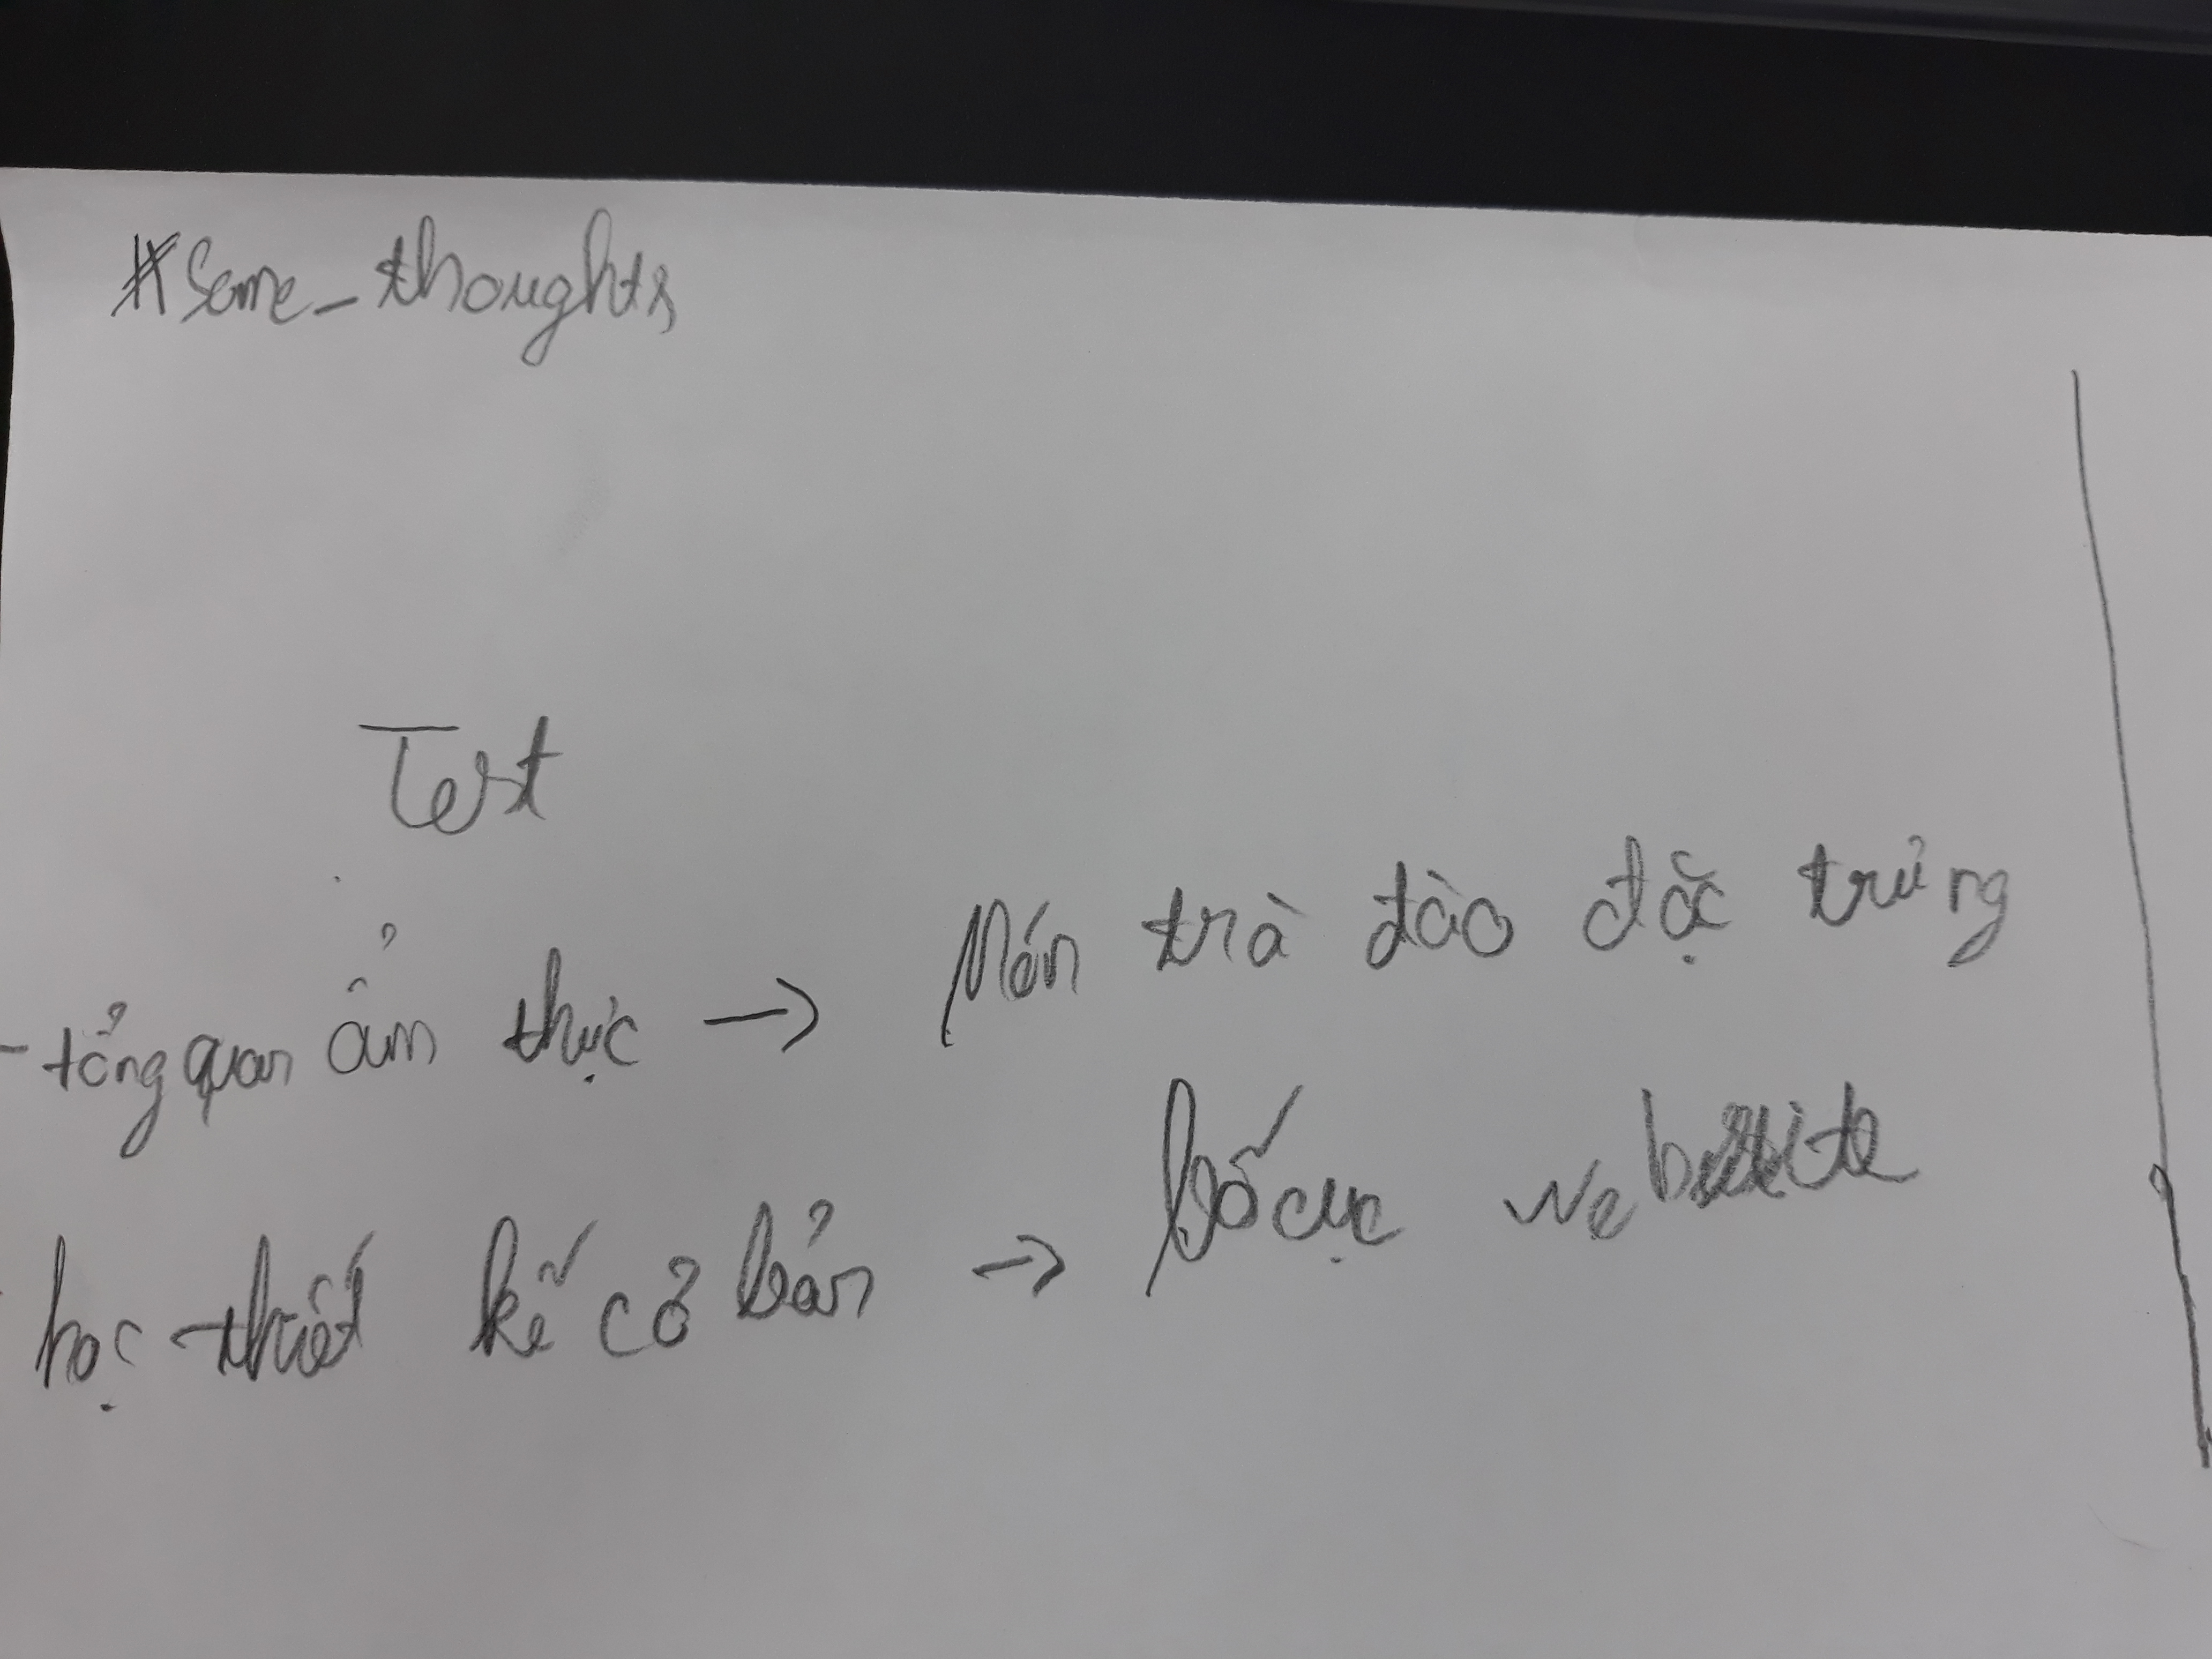 #Some_thoughts
Test
- tổng quan ẩm thực → Món trà đào đặc trưng
học thiết kế cơ bản → bố cục website